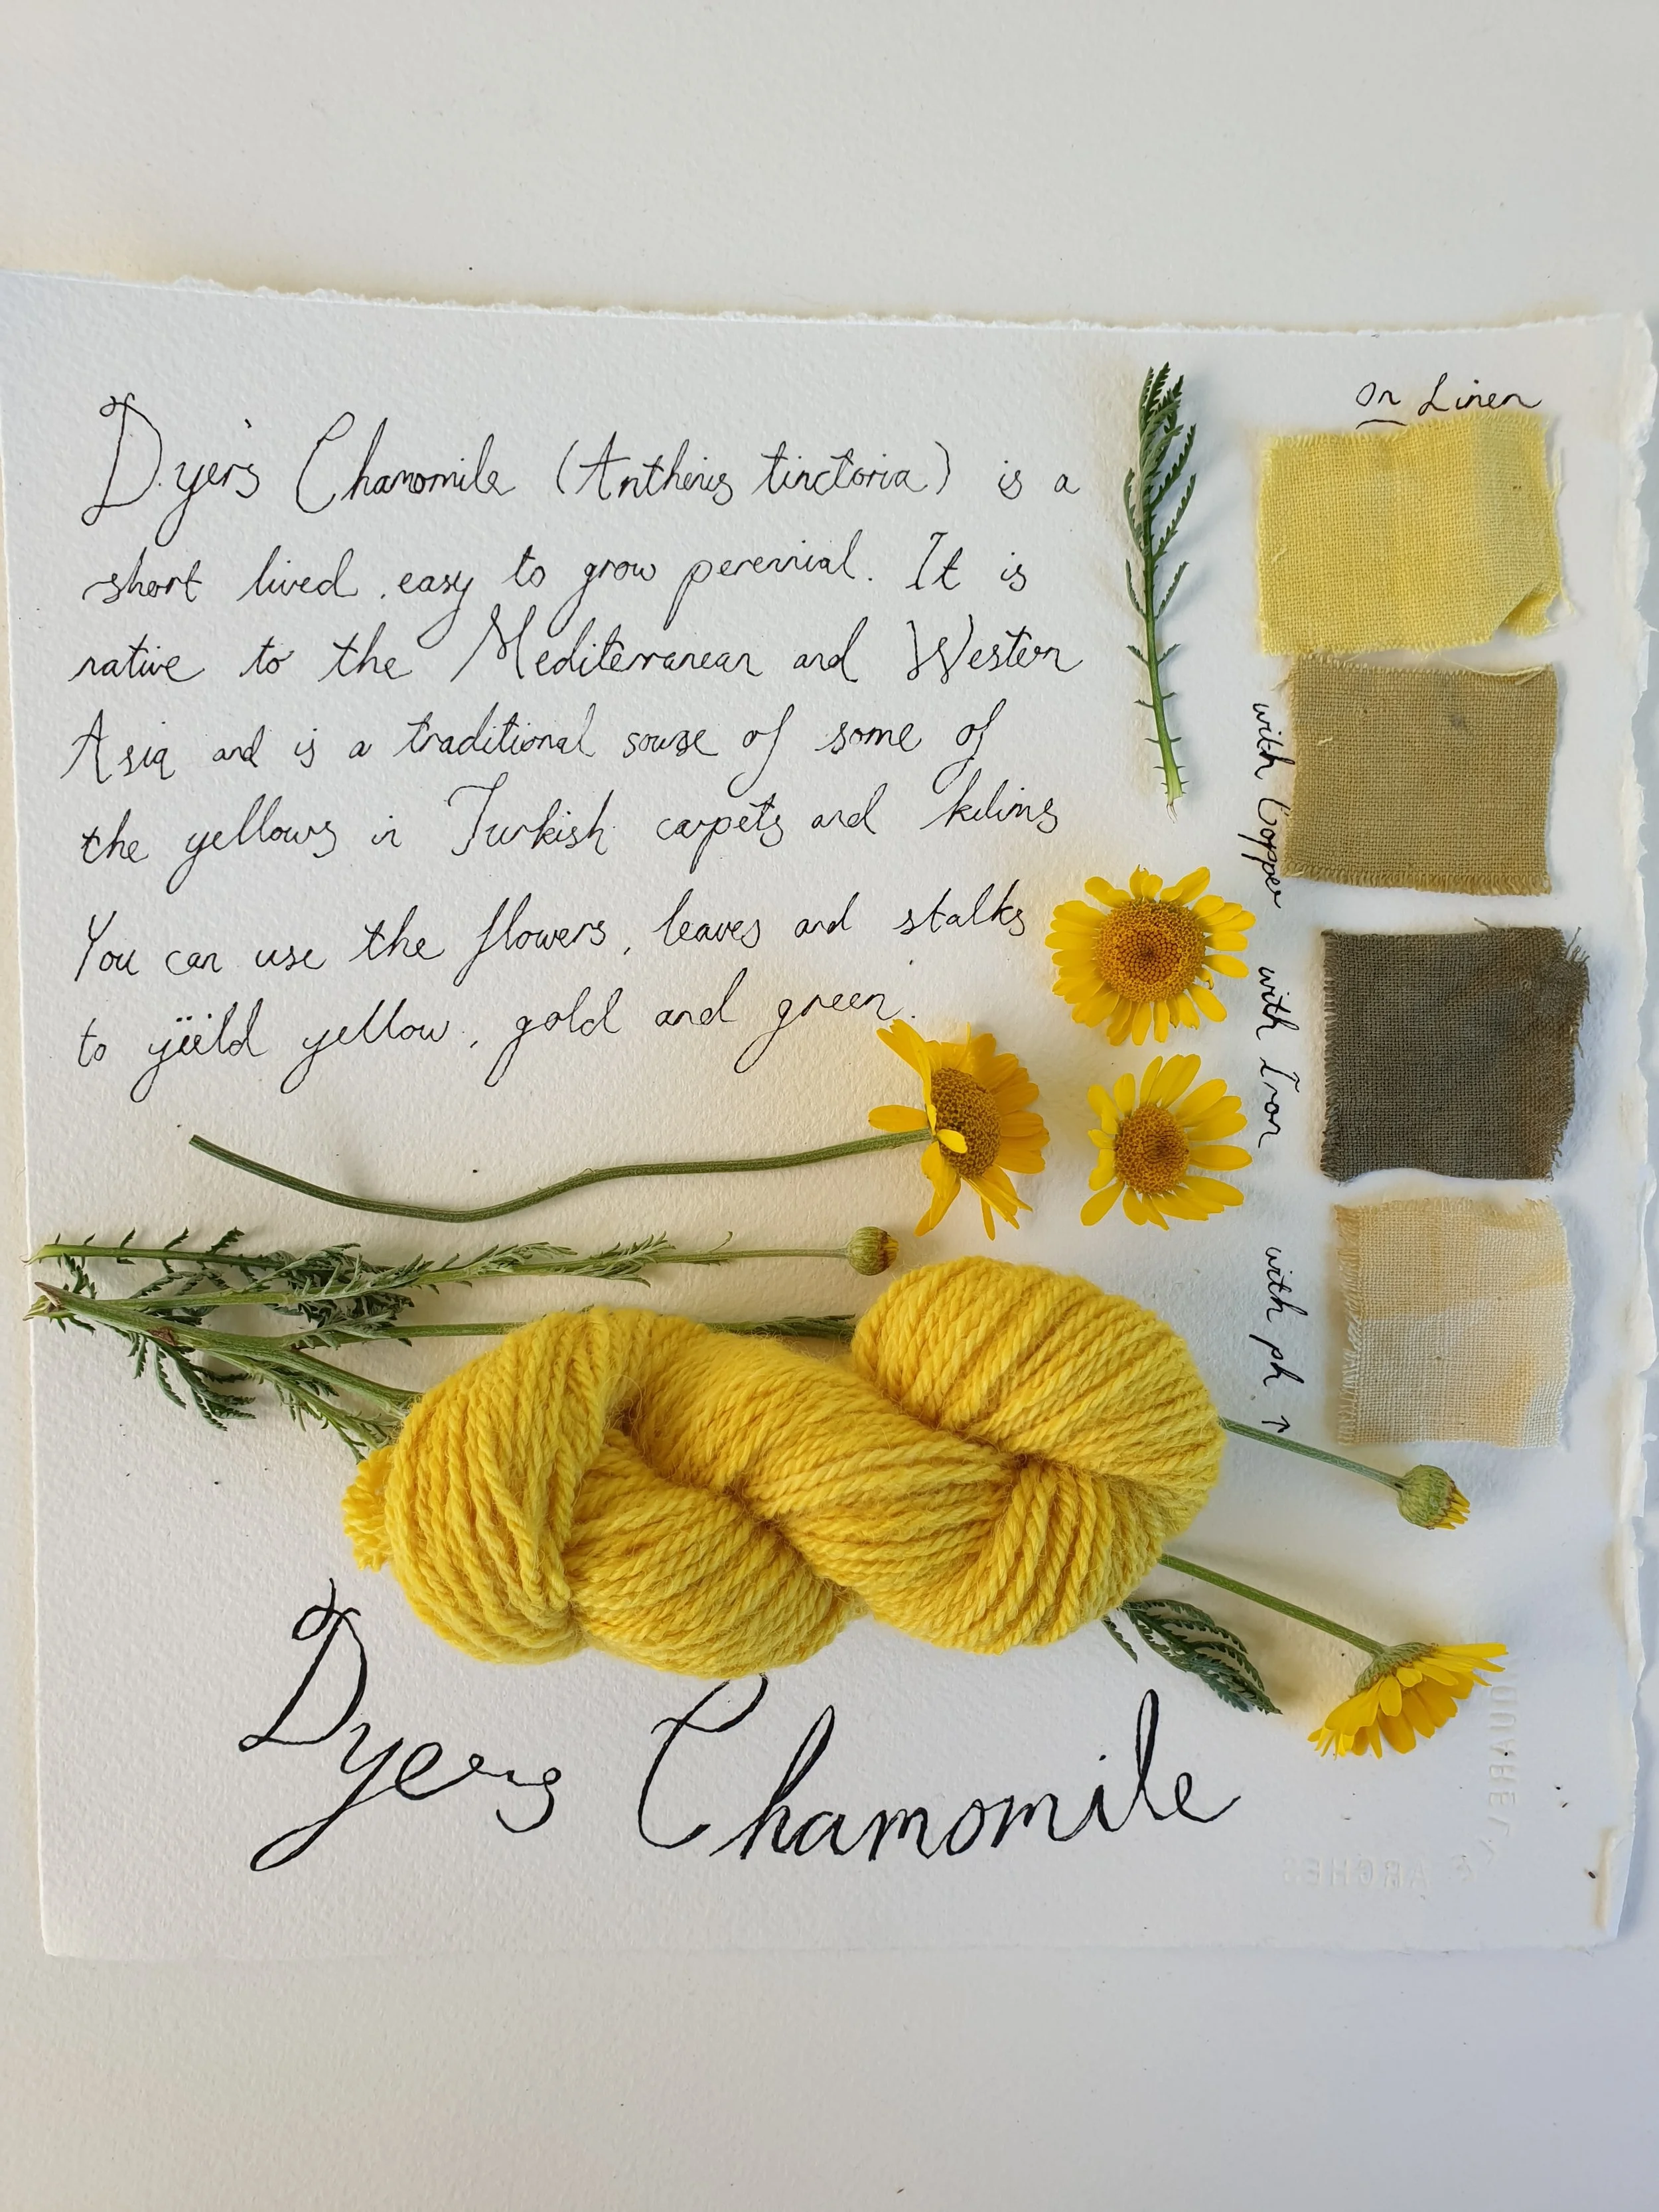 Dyer's Chamomile (Anthemis tinctoria) is a
short lived, easy to grow perennial. It is
native to the Mediterranean and Western
Asia and is a traditional sourse of some of
the yellows in Turkish carpets and kilims
You can use the flowers, leaves and stalks
to yield yellow, gold and green.
On Linen
with Copper
with Iron
with ph ↑
Dyers Chamomile
ARCHES